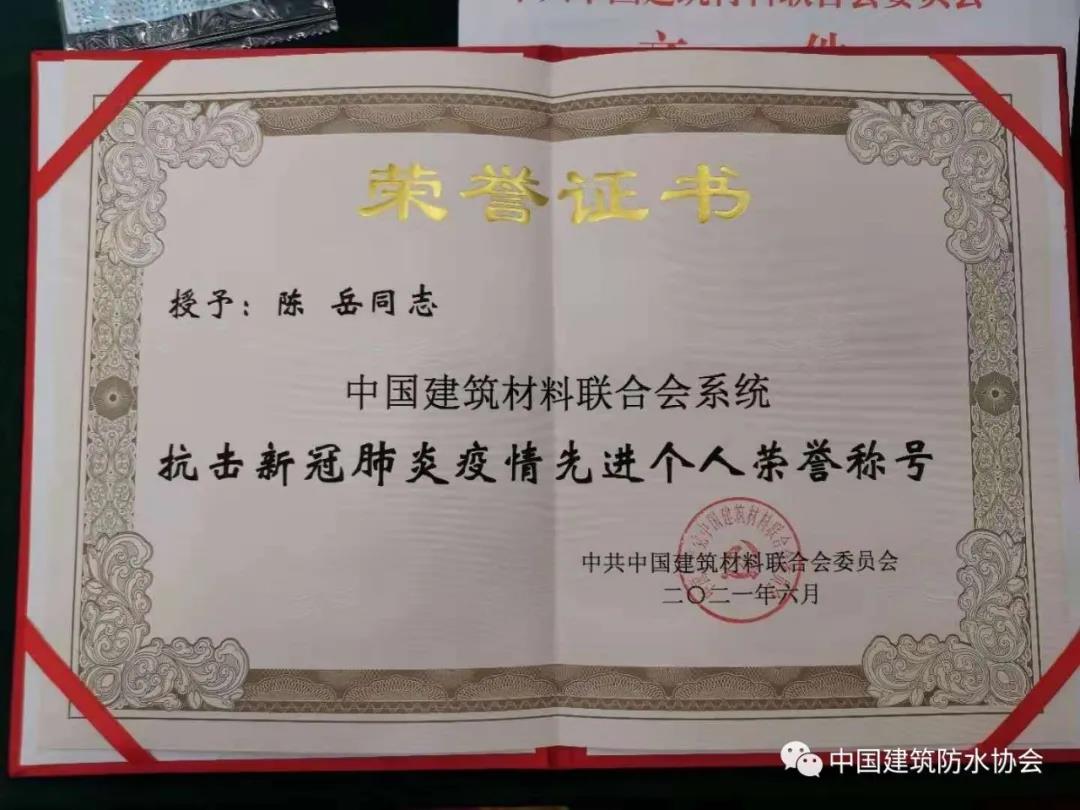 中共中国建筑材料联合会委员会
文 件
荣誉证书
授予：陈 岳同志
中国建筑材料联合会系统
抗击新冠肺炎疫情先进个人荣誉称号
中共中国建筑材料联合会委员会
二〇二一年六月
中国建筑防水协会